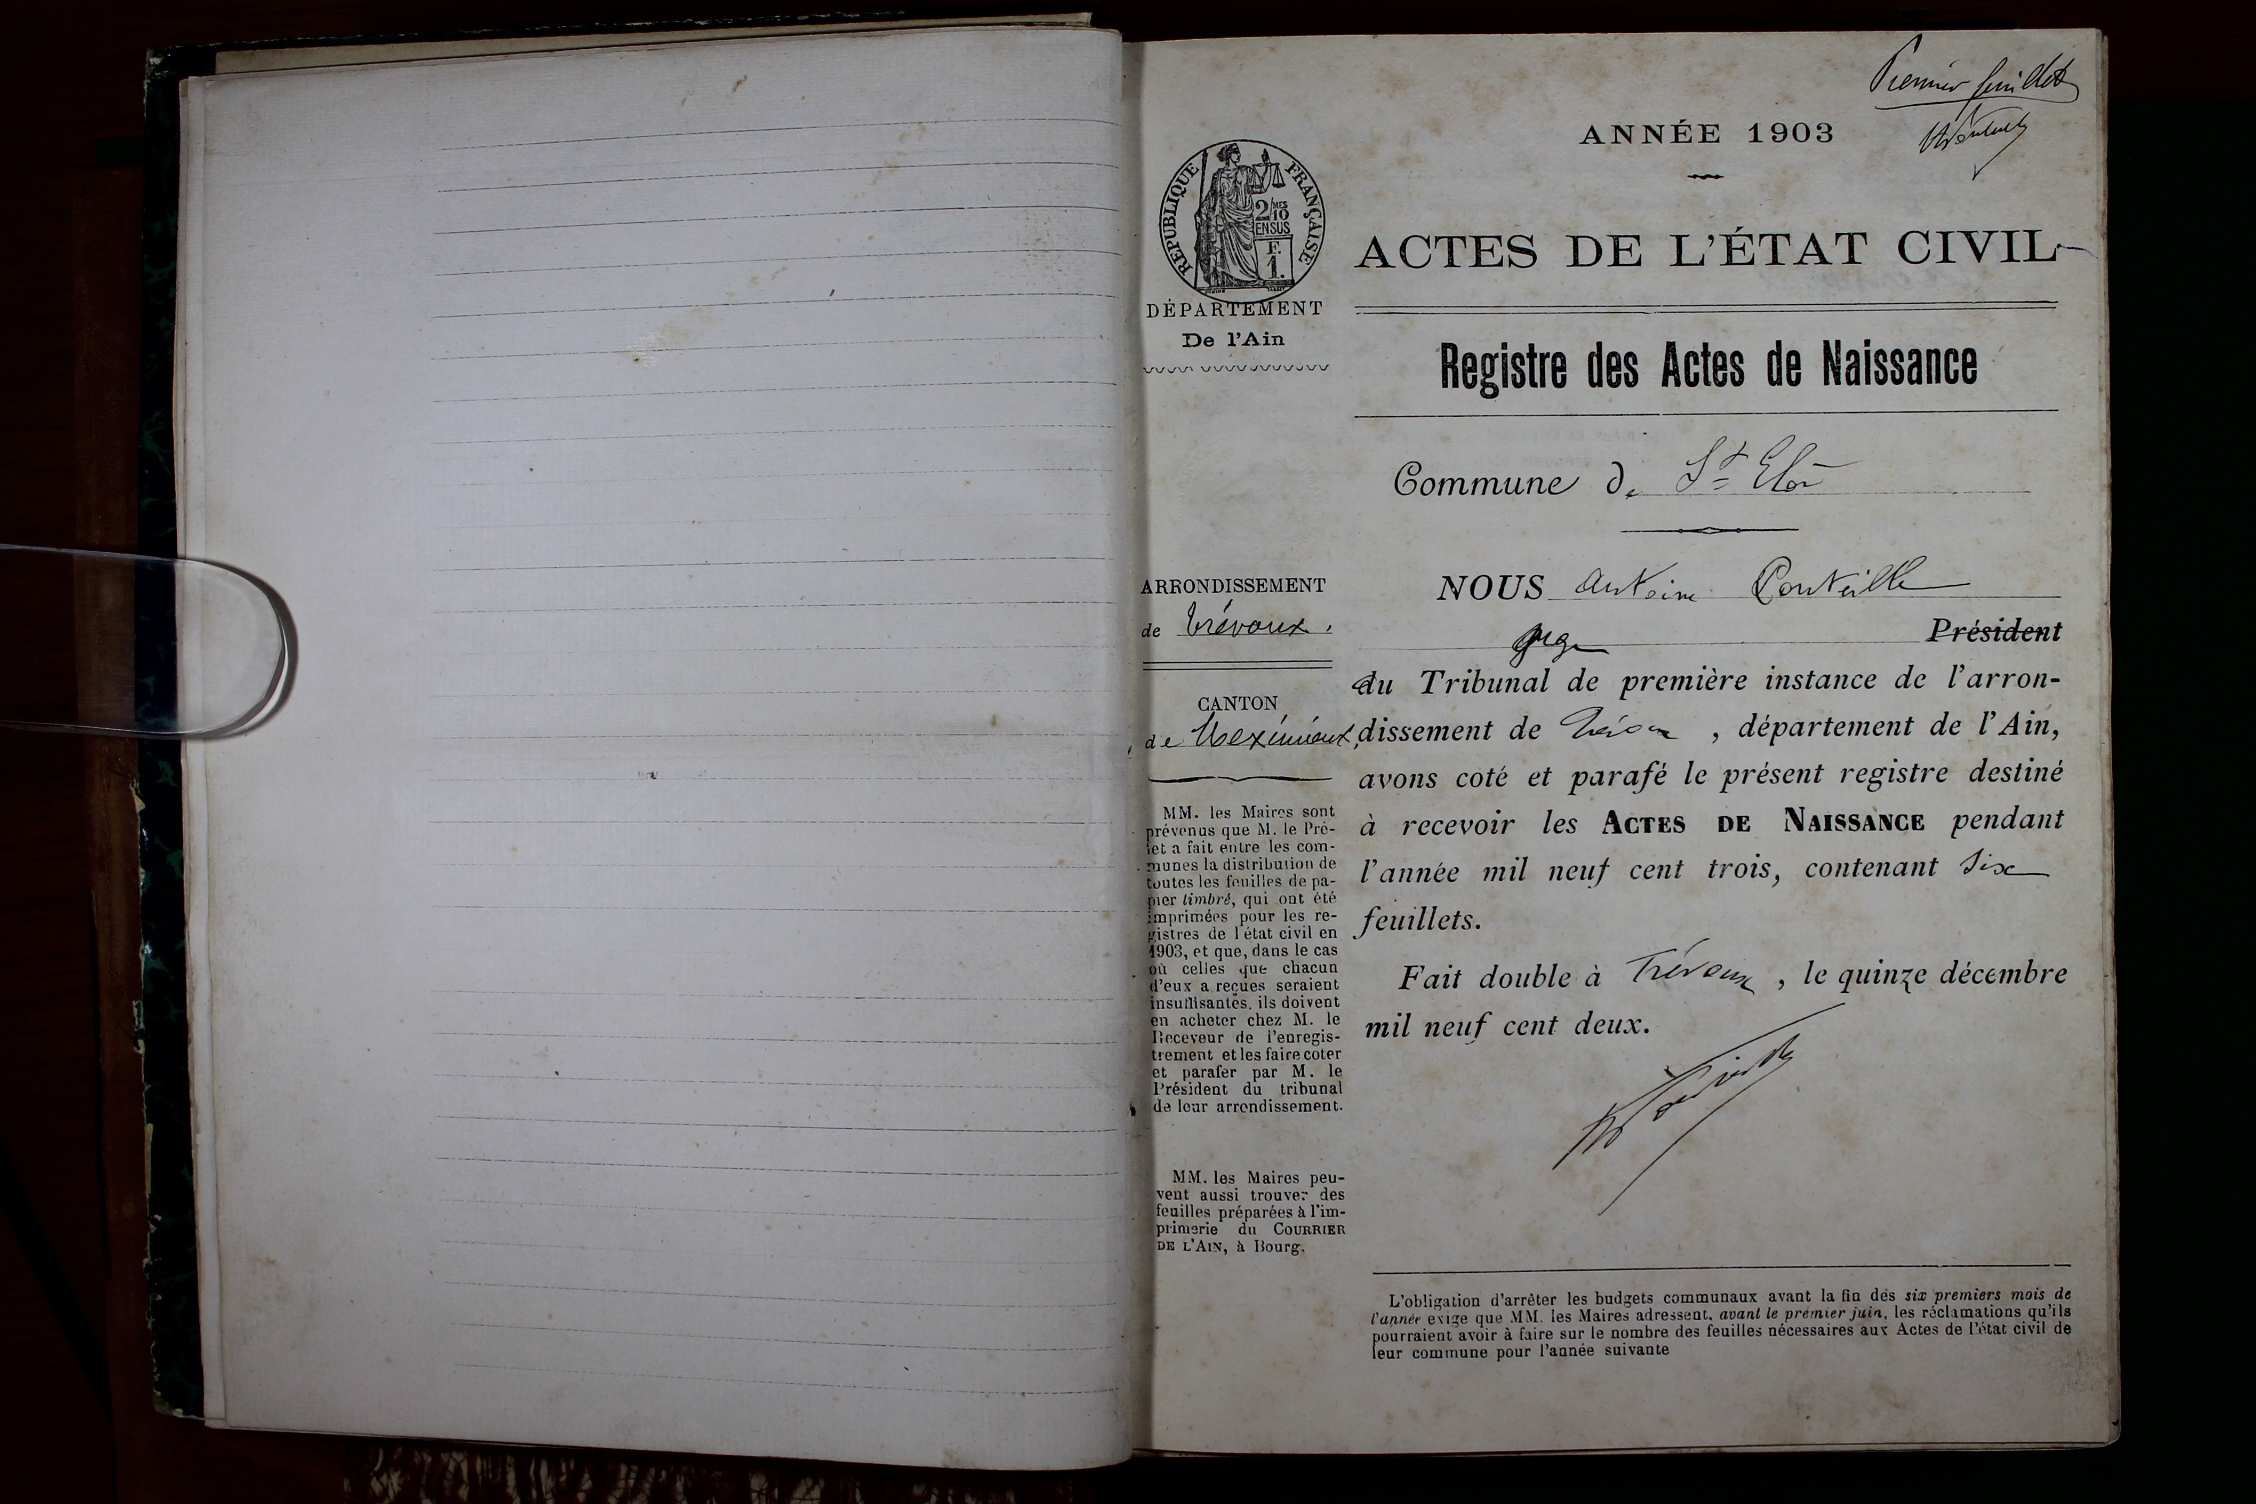 Premier feuillet
ANNÉE 1903
RÉPUBLIQUE FRANÇAISE
2/10
MES
EN SUS
F.
1.
DÉPARTEMENT
De l'Ain
ARRONDISSEMENT
de Trévoux.
CANTON
de Meximieux,
MM. les Maires sont
prévenus que M. le Pré-
fet a fait entre les com-
munes la distribution de
toutes les feuilles de pa-
pier timbré, qui ont été
imprimées pour les re-
gistres de l'état civil en
1903, et que, dans le cas
où celles que chacun
d'eux a reçues seraient
insuffisantes, ils doivent
en acheter chez M. le
Receveur de l'enregis-
trement et les faire coter
et parafer par M. le
Président du tribunal
de leur arrondissement.
MM. les Maires peu-
vent aussi trouver des
feuilles préparées à l'im-
primerie du COURRIER
DE L'AIN, à Bourg.
ACTES DE L'ÉTAT CIVIL
Registre des Actes de Naissance
Commune de St Eloi
NOUS Antoine Ponteille
juge Président
du Tribunal de première instance de l'arron-
dissement de Trévoux, département de l'Ain,
avons coté et parafé le présent registre destiné
à recevoir les ACTES DE NAISSANCE pendant
l'année mil neuf cent trois, contenant six
feuillets.
Fait double à Trévoux, le quinze décembre
mil neuf cent deux.
L'obligation d'arrêter les budgets communaux avant la fin des six premiers mois de
l'année exige que MM. les Maires adressent, avant le premier juin, les réclamations qu'ils
pourraient avoir à faire sur le nombre des feuilles nécessaires aux Actes de l'état civil de
leur commune pour l'année suivante